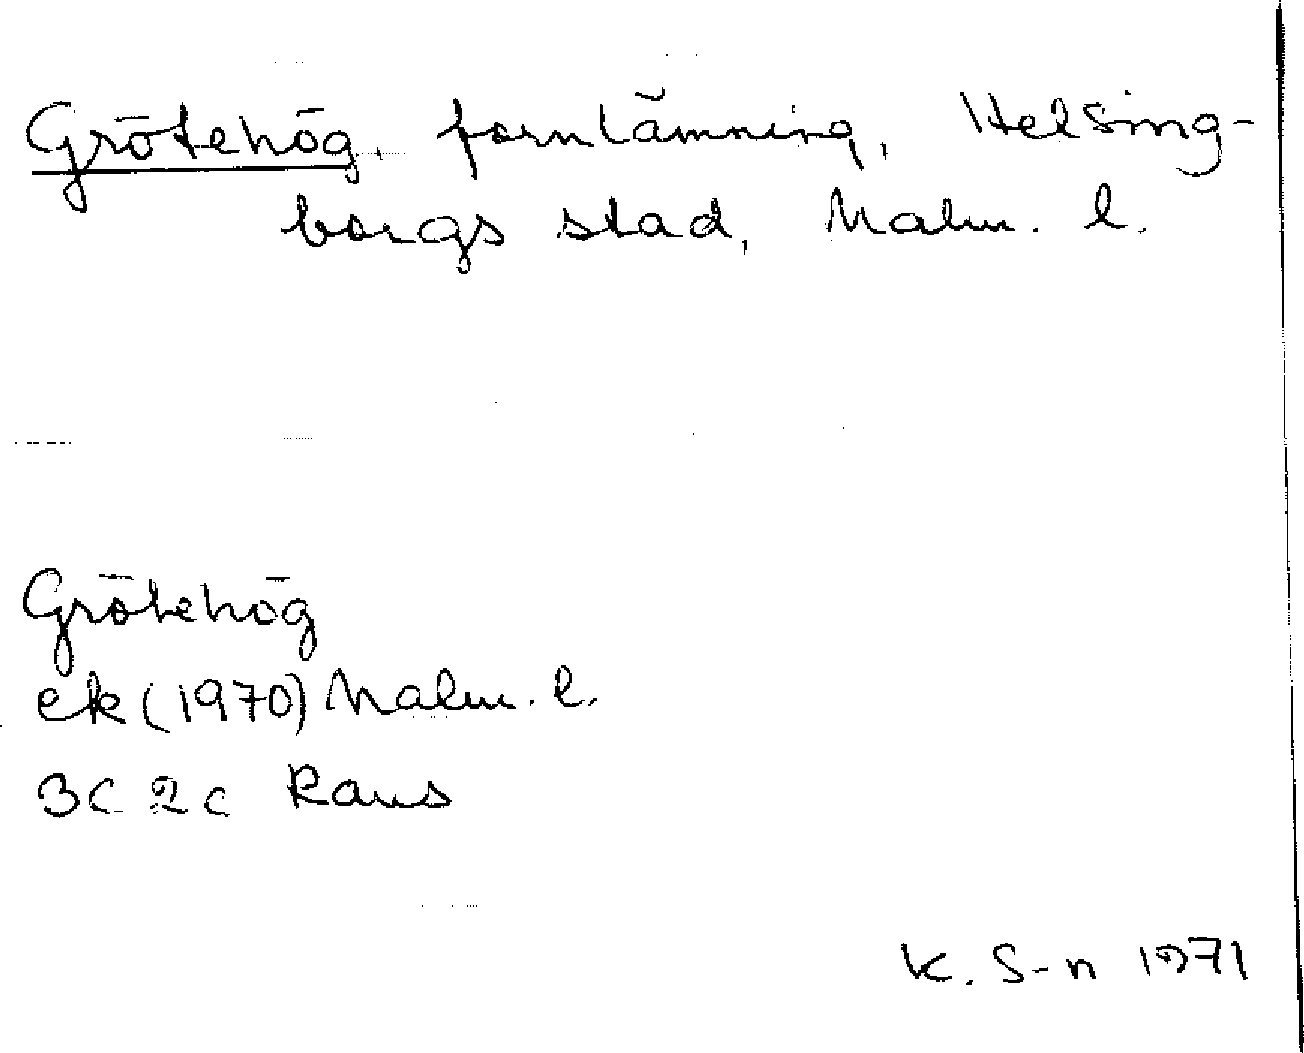 Grötehög, fornlämning, Helsing-
borgs stad, Malm. l.
Grötehög
ek (1970) Malm. l.
3C 2c Raus
K. S-n 1971